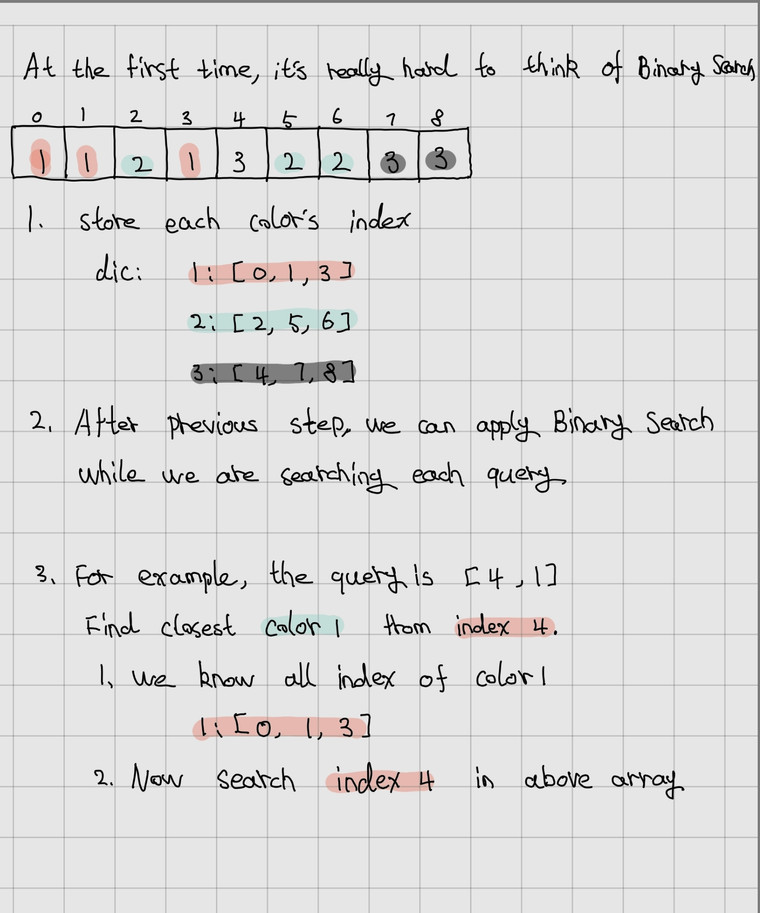 At the first time, it's really hard to think of Binary Search
0 1 2 3 4 5 6 7 8
1 1 2 1 3 2 2 3 3
1. store each color's index
dic: 1: [0, 1, 3]
2: [2, 5, 6]
3: [4, 7, 8]
2. After previous step, we can apply Binary Search
while we are searching each query.
3. For example, the query is [4, 1]
Find closest color 1 from index 4.
1, we know all index of color 1
1: [0, 1, 3]
2. Now search index 4 in above array